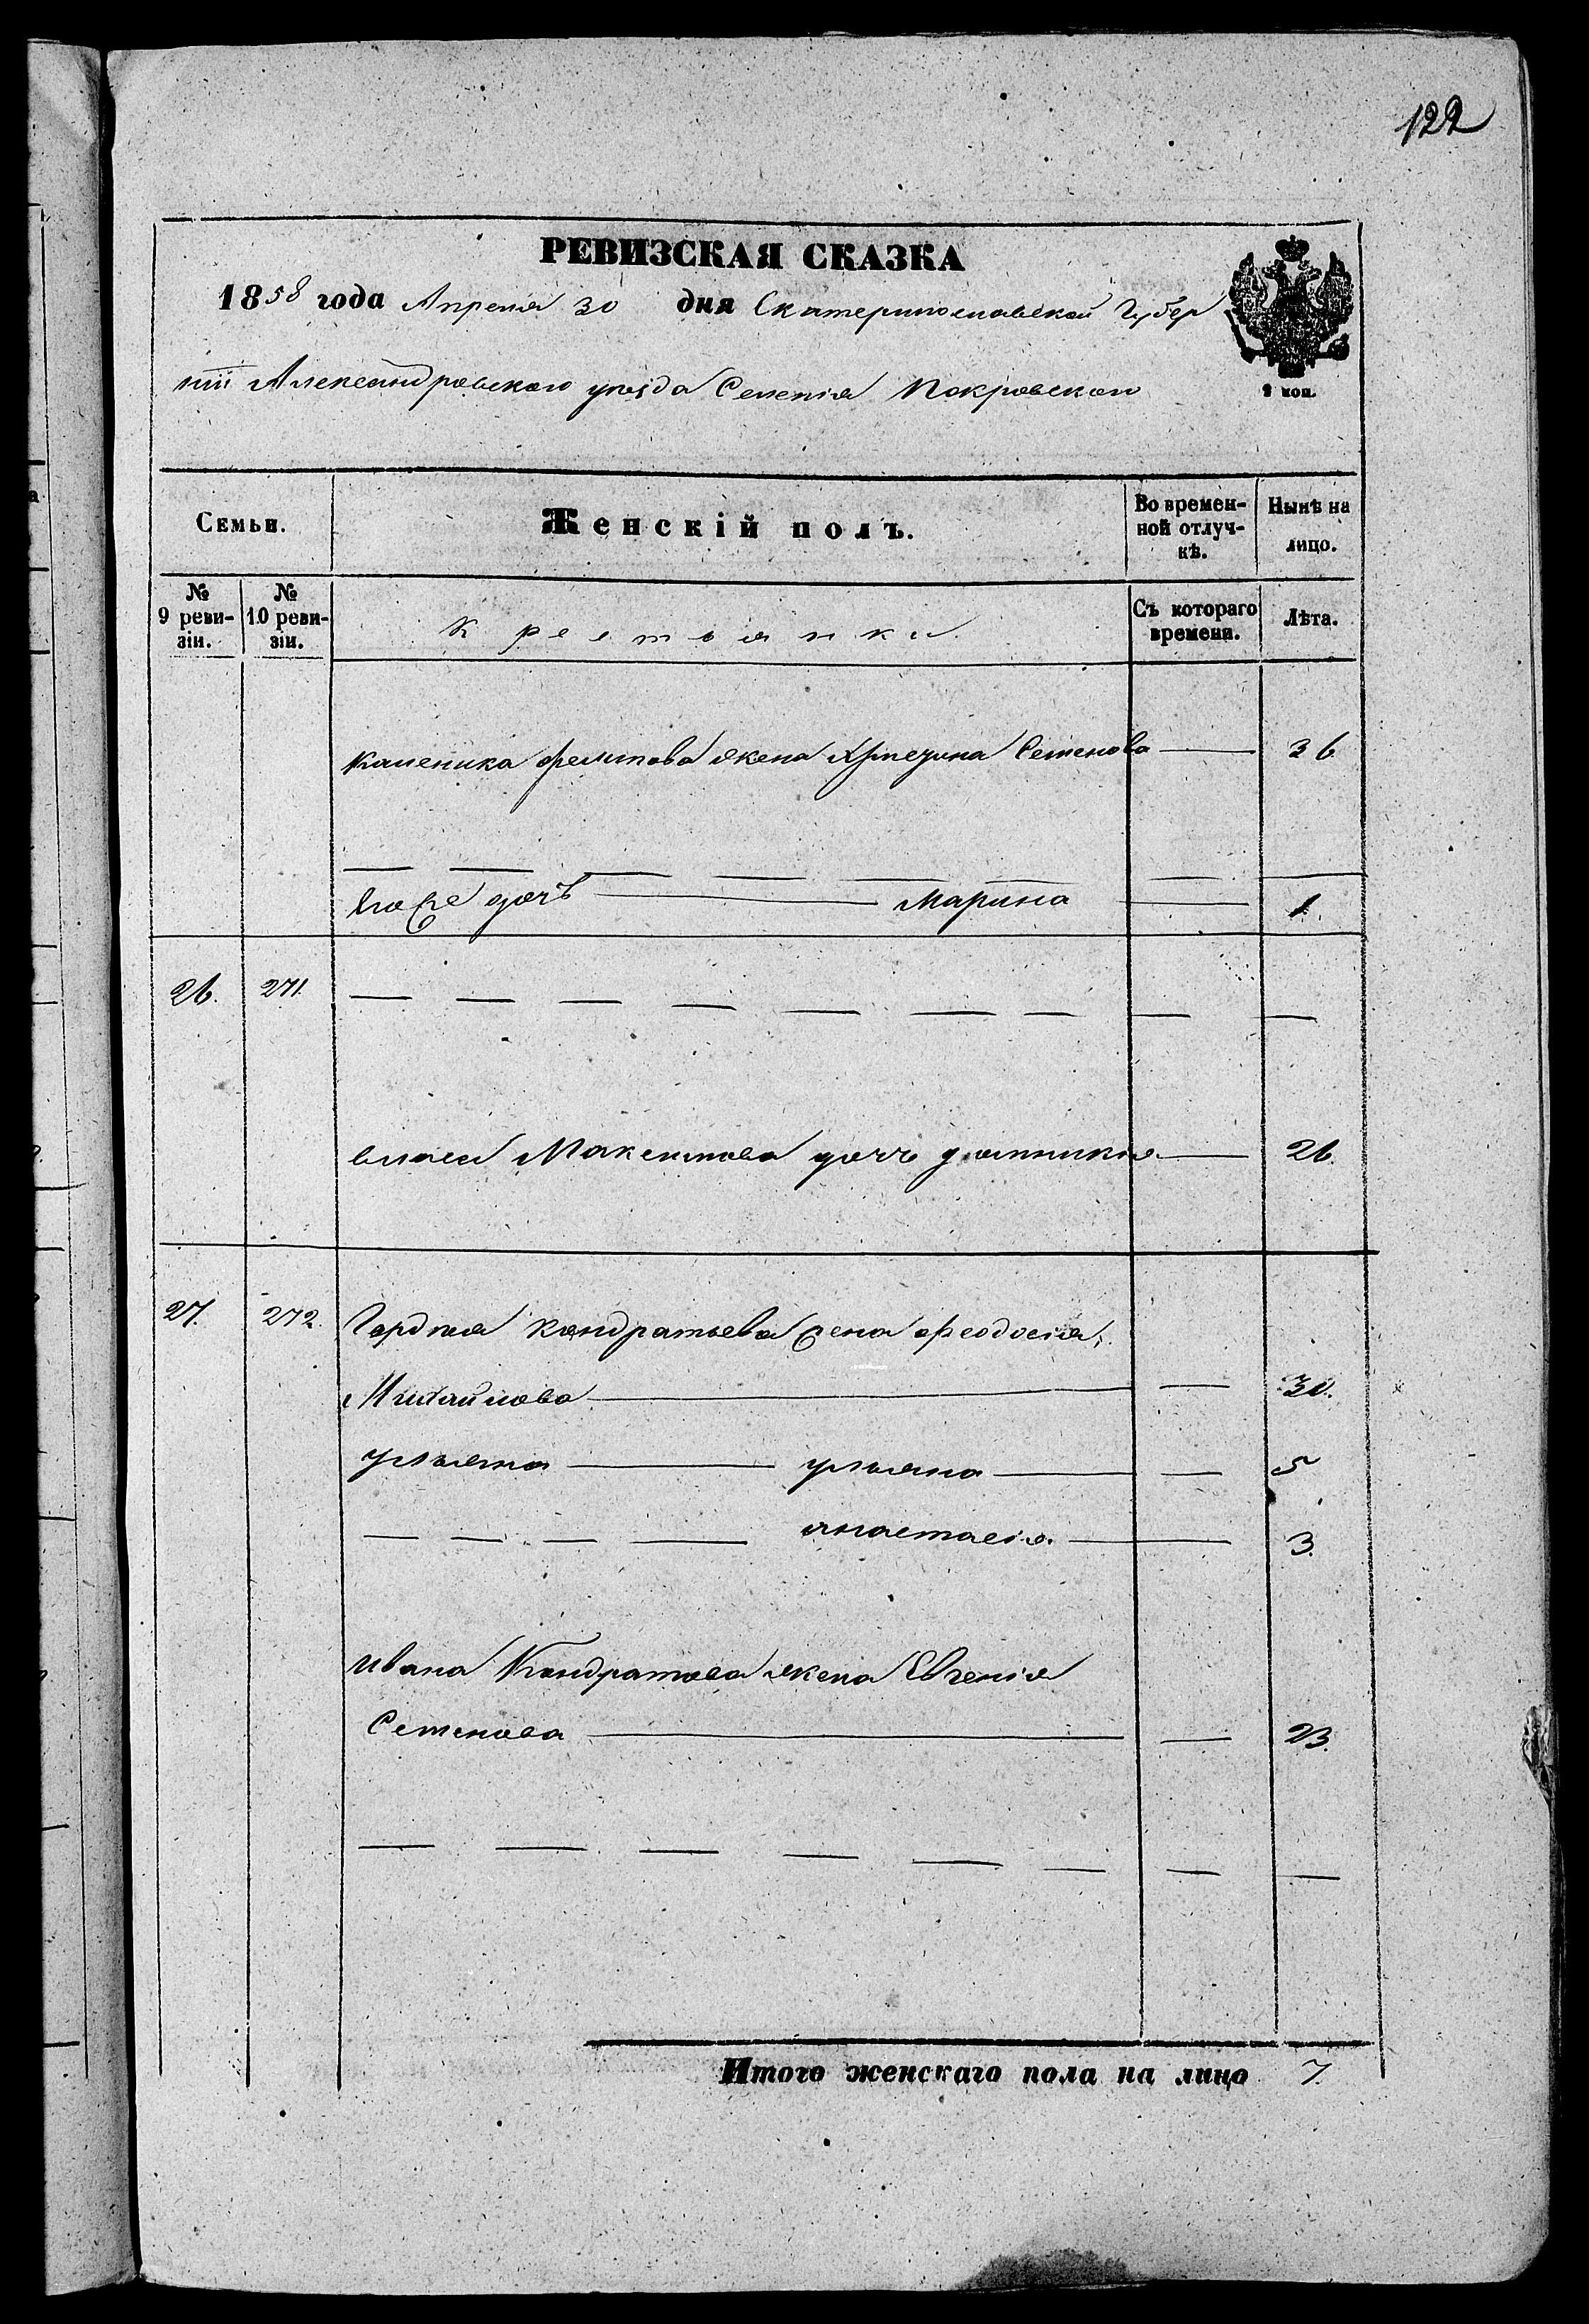 122
РЕВИЗСКАЯ СКАЗКА
1858 года Апреля 30 дня Екатеринославской Губер
ніи Александровского уезда Селенія Покровского
2 коп.
Семьи.
Женскій полъ.
Во времен-
ной отлуч-
кѣ.
Нынѣ на
лицо.
№
9 реви-
зіи.
№
10 реви-
зіи.
Крестьянки
Съ котораго
времени.
Лѣта.
Калиника жена Семенова — 36
— — — — — — — —
Его же дочъ — Марина — 1.
26. 271. — — — — — — — — —
Максимова дочь — 26.
27. 272. Гордея Кондратьева жена Феодосія
Михайлова — — 30.
Ульяна — — 5
— — — — анастасія — 3.
Ивана Кондратова жена Евгенія
Семенова — — 23.
— — — — — — — —
Итого женскаго пола на лицо 7.